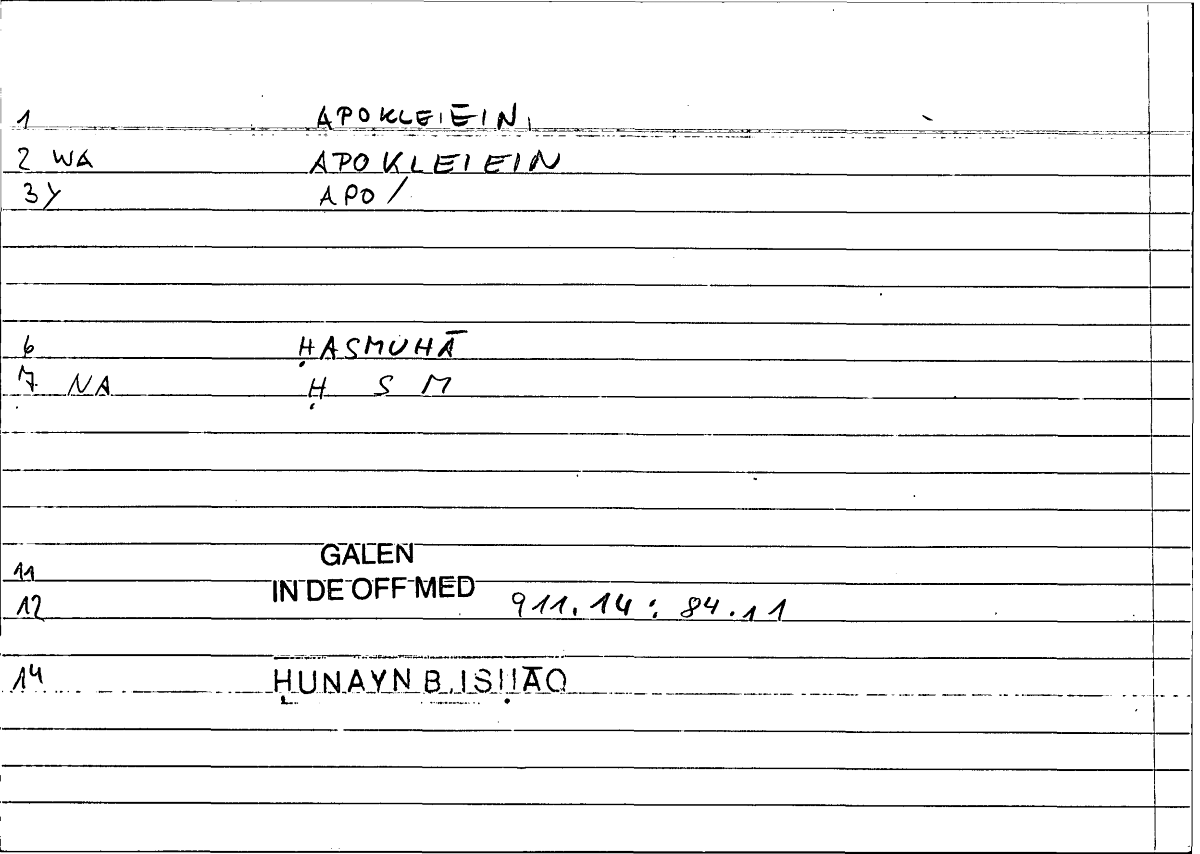 1 APOKLEIĒIN,
2 WA APOKLEIEIN
3Y APO/
6 ḤASMUHĀ
7 NA Ḥ S M
GALEN
11
IN DE OFF MED
12 911.14 : 84.11
14 ḤUNAYN B. ISḤĀQ